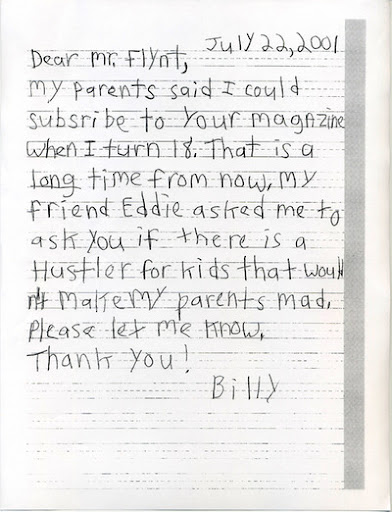 July 22, 2001
Dear Mr. Flynt,
My parents said I could
subsribe to your magazine
when I turn 18. That is a
long time from now. My
friend Eddie asked me to
ask you if there is a
Hustler for kids that would
n't make my parents mad.
Please let me know.
Thank you!
Billy